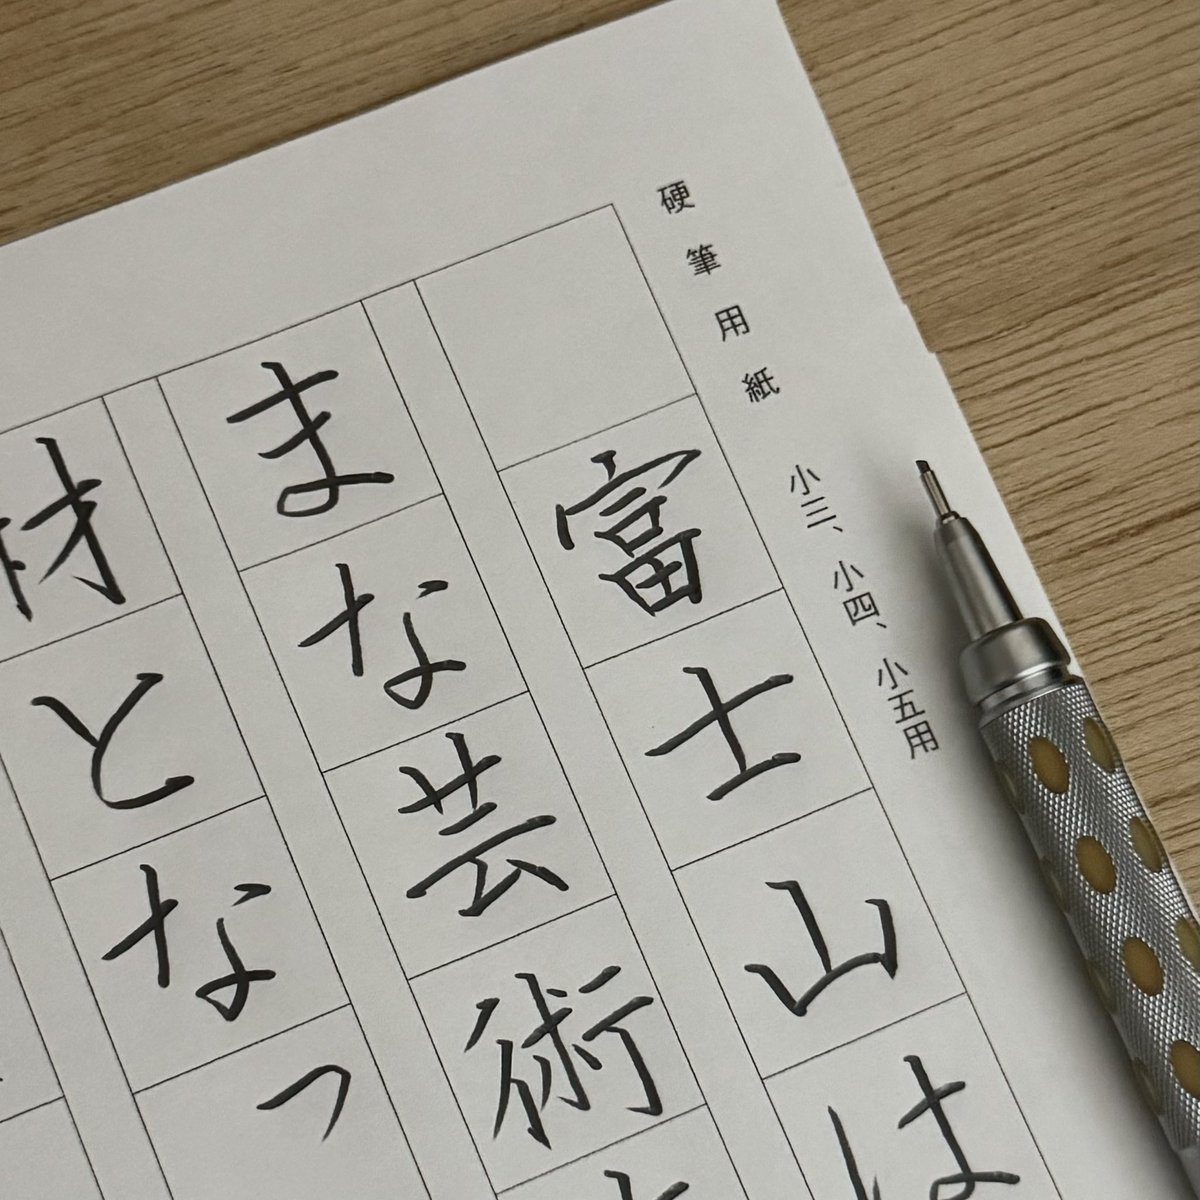 硬筆用紙 小三、小四、小五用
富士山は
まな芸術
材となっ